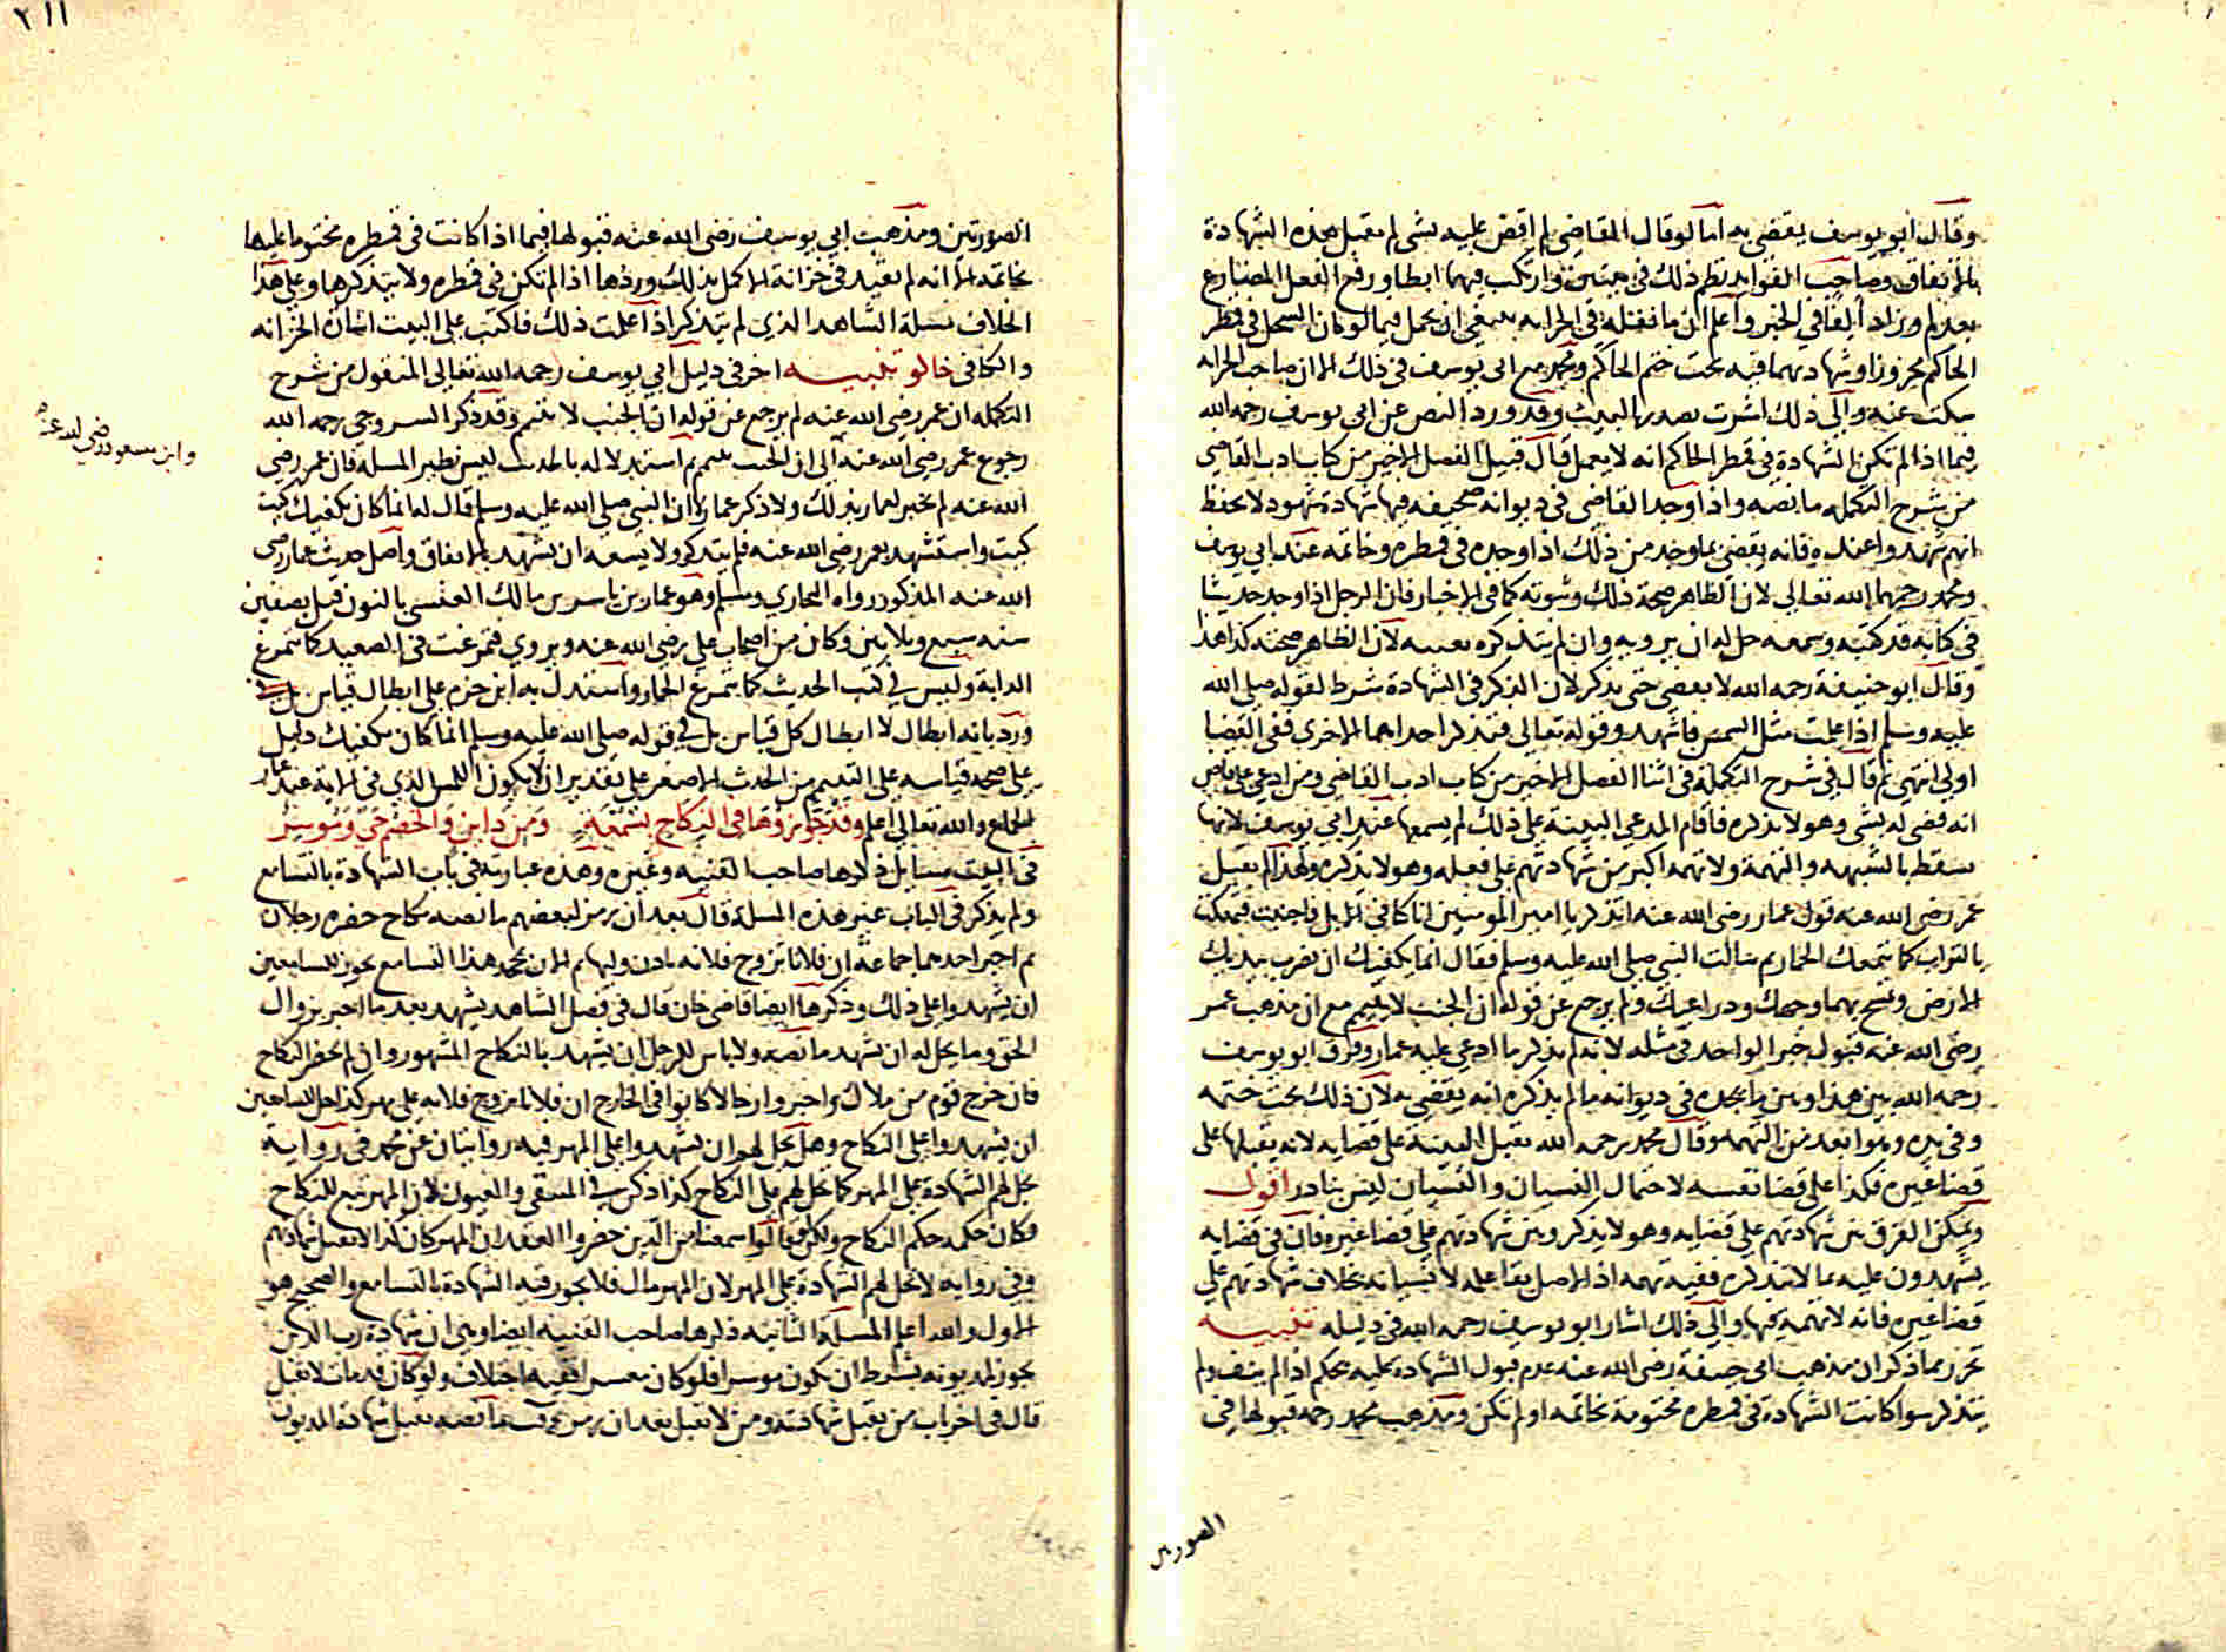 وقال ابو يوسف يقضي به اما لو قال القاضي لم اقض عليه بشي لم يقبل هذه الشهادة
بالاتفاق وصاحب الفوايد نظم ذلك في بيتين وارتكب فيهما ابطا ورفع الفعل المضارع
بعد لم وزاد ايضا في الخبر واعلم ان ما نقلته في الخزانه ينبغي ان يحمل فيما لو كان السجل في قمطر
الحاكم محروزا وشهادتهما فيه تحت ختم الحاكم ومحمد مع ابي يوسف في ذلك الا ان صاحب الخزانه
سكت عنه والى ذلك اشرت بصدر البيت وقد ورد النص عن ابي يوسف رحمه الله
فيما اذا لم تكن الشهادة في قمطر الحاكم انه لا يعمل قال قبيل الفصل الاخير من كتاب ادب القاضي
من شرح التكمله ما نصه واذا وجد القاضي في ديوانه صحيفه فيها شهادة شهود لا يحفظ
انهم شهدوا عنده فانه يقضي بما وجد من ذلك اذا وجده في قمطره وخاتمه عند ابي يوسف
ومحمد رحمهما الله تعالى لان الظاهر صحة ذلك وثبوته كما في الاخبار فان الرجل اذا وجد حديثا
في كتابه قد كتبه وسمعه حل له ان يرويه وان لم يتذكره بعينه لان الظاهر صحته كذا هذا
وقال ابو حنيفة رحمه الله لا يقضي حتى يذكر لان الذكر في الشهادة شرط لقوله صلى الله
عليه وسلم اذا علمت مثل الشمس فاشهد وقوله تعالى فتذكر احداهما الاخرى ففي القضا
اولى انتهى ثم قال في شرح التكملة في اثنا الفصل الاخير من كتاب ادب القاضي ومن ادعى على قاض
انه قضى له بشي وهو لا يذكره فاقام المدعي البينة على ذلك لم يسمعها عند ابي يوسف لانها
تسقط بالشبهه والتهمة ولا تهمه اكبر من شهادتهم على فعله وهو لا يذكره ولهذا لم يقبل
عمر رضي الله عنه قول عمار رضي الله عنه اتذكر يا امير المومنين انا كنا في الابل فاجنبت فتمعكت
بالتراب كما يتمعك الحمار ثم سالت النبي صلى الله عليه وسلم فقال انما يكفيك ان تضرب بيديك
الارض وتمسح بهما وجهك وذراعيك ولم يرجع عن قوله ان الجنب لا يتيمم مع ان مذهب عمر
رضي الله عنه قبول خبر الواحد في مثله لانه لم يذكر ما ادعى عليه عمار وفرق ابو يوسف
رحمه الله بين هذا وبين ما يجده في ديوانه مالم يذكره انه يقضي به لان ذلك تحت ختمه
وفي يده وهو ابعد من التهمه وقال محمد رحمه الله تقبل البينة على قضايه لانه يقبلها على
قضا غيره فكذا على قضا نفسه لاحتمال النسيان والنسيان ليس بنادر اقول
ويمكن الفرق بين شهادتهم على قضايه وهو لا يذكر وبين شهادتهم على قضا غيره فان في قضايه
يشهدون عليه بما لا يتذكره ففيه تهمه اذ الاصل بقا علمه لا نسيانه بخلاف شهادتهم على
قضا غيره فانه لا تهمة فيها والى ذلك اشار ابو يوسف رحمه الله في دليله تنبيه
تحرر مما ذكر ان مذهب ابي حنيفة رضي الله عنه عدم قبول الشهادة عليه بحكم اذا لم ولم
يتذكر سوا كانت الشهادة في قمطره مختومة بخاتمه او لم تكن ومذهب محمد رحمه قبولها في
الصورتين
٢١١
الصورتين ومذهب ابي يوسف رضي الله عنه قبولها فيما اذا كانت في قمطره مختوما عليها
بخاتمه الا انه لم يقيد في خزانة الاكمل بذلك وردها اذا لم تكن في قمطره ولا يتذكرها وعلى هذا
الخلاف مسلة الشاهد الذي لم يتذكر اذا علمت ذلك فاكتب على البيت اشارة الخزانه
والكافي تنبيه اخر في دليل ابي يوسف رحمه الله تعالى المنقول من شرح
التكمله ان عمر رضي الله عنه لم يرجع عن قوله ان الجنب لا يتيمم وقد ذكر السروجي رحمه الله
وابن مسعود رضي الله عنه
رجوع عمر رضي الله عنه الى ان الجنب يتيمم ثم استدلاله بالحديث ليس نظير المسلة فان عمر رضي
الله عنه لم يخبر لعمار بذلك ولا ذكر عمار الا ان النبي صلى الله عليه وسلم قال له انما كان يكفيك كيت
كيت واستشهد بعمر رضي الله عنه فلم يتذكر ولا يسعه ان يشهد بالاتفاق واصل حديث عمار رضي
الله عنه المذكور رواه البخاري ومسلم وهو عمار بن ياسر بن مالك العنسي بالنون قتل بصفين
سنه سبع وثلاثين وكان من اصحاب علي رضي الله عنه ويروي فتمرغت في الصعيد كما تتمرغ
الدابة وليس في كتب الحديث كما يتمرغ الحمار واستدل به ابن حزم على ابطال قياس
ورد بانه ابطال لا ابطال كل قياس بل في قوله صلى الله عليه وسلم انما كان يكفيك دليل
على صحه قياسه على التيمم من الحدث الاصغر على تقدير ان لا يكون اللمس الذي في الاية عند عمار
الجماع والله تعالى اعلم وقد جوزوها في النكاح بسمعة ومن داين والخصم حي وموسر
في البيت مسايل ذكرها صاحب القنيه وغيره وهذه عبارته في باب الشهادة بالتسامع
ولم يذكر في الباب غير هذه المسلة قال بعد ان رمز لبعضهم ما نصه نكاح حضره رجلان
ثم اخبر احدهما جماعة ان فلانا تزوج فلانه باذن وليها ثم الان يجحد هذا التسامع يجوز للسامعين
ان يشهدوا على ذلك وذكرها ايضا قاضي خان قال في فصل الشاهد يشهد بعد ما اخبر بزوال
الحق وما يحل له ان يشهد ما نصه ولا باس للرجل ان يشهد بالنكاح المشهور وان لم يحضر النكاح
فان خرج قوم من ملاك واخبروا رجالا كانوا في الخارج ان فلانا تزوج فلانه على مهر كذا حل للسامعين
ان يشهدوا على النكاح وهل يحل لهم ان يشهدوا على المهر فيه روايتان عن محمد في رواية
تحل لهم الشهادة على المهر كما تحل لهم على النكاح كذا ذكر في المنتقى والعيون لان المهر تبع للنكاح
فكان حكمه حكم النكاح سمعنا من الذين حضروا العقد ان المهر كان كذا لا تقبل شهادتهم
وفي روايه لا تحل لهم الشهادة على المهر لان المهر مال فلا يجوز فيه الشهادة بالتسامع والصحيح هو
الاول والله اعلم المسلة الثانيه ذكرها صاحب القنيه ايضا وهي ان شهادة رب الدين
يجوز لمديونه بشرط ان يكون موسرا فلو كان معسرا ففيه اختلاف ولو كان قد مات لا تقبل
قال في اخر باب من تقبل شهادته ومن لا تقبل بعد ان رمز ما نصه تقبل شهادة المديون